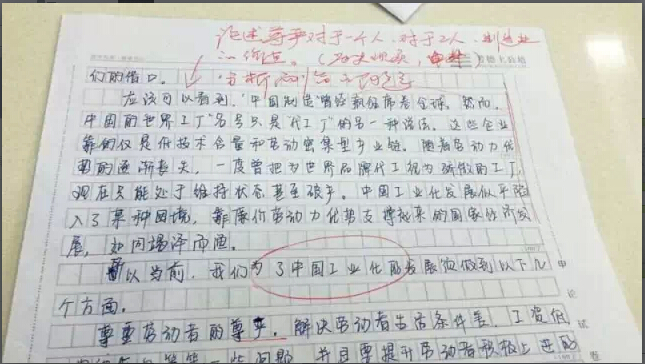 论述尊严对于一个人，对于工人，制造业
的价值。（
分析
们的借口。
应该可以看到，“中国制造”曾经气席卷全球。然而，
中国的“世界工厂”名号只是“代工厂”的另一种说法。这些企业
靠的仅是低技术含量和劳动密集型产业链。随着劳动力优
势的逐渐丧失，一度曾把为世界品牌代工视为骄傲的工厂，
现在只能处于维持状态甚至破产。中国工业化发展似乎陷
入了某种困境，靠廉价劳动力优势支撑起来的国家经济发
展，如同竭泽而渔。
所以当前，我们为了中国工业化的发展须做到以下几
个方面。
尊重劳动者的尊严。解决劳动者生活条件差、工资低
一些问题，并且要提升劳动者